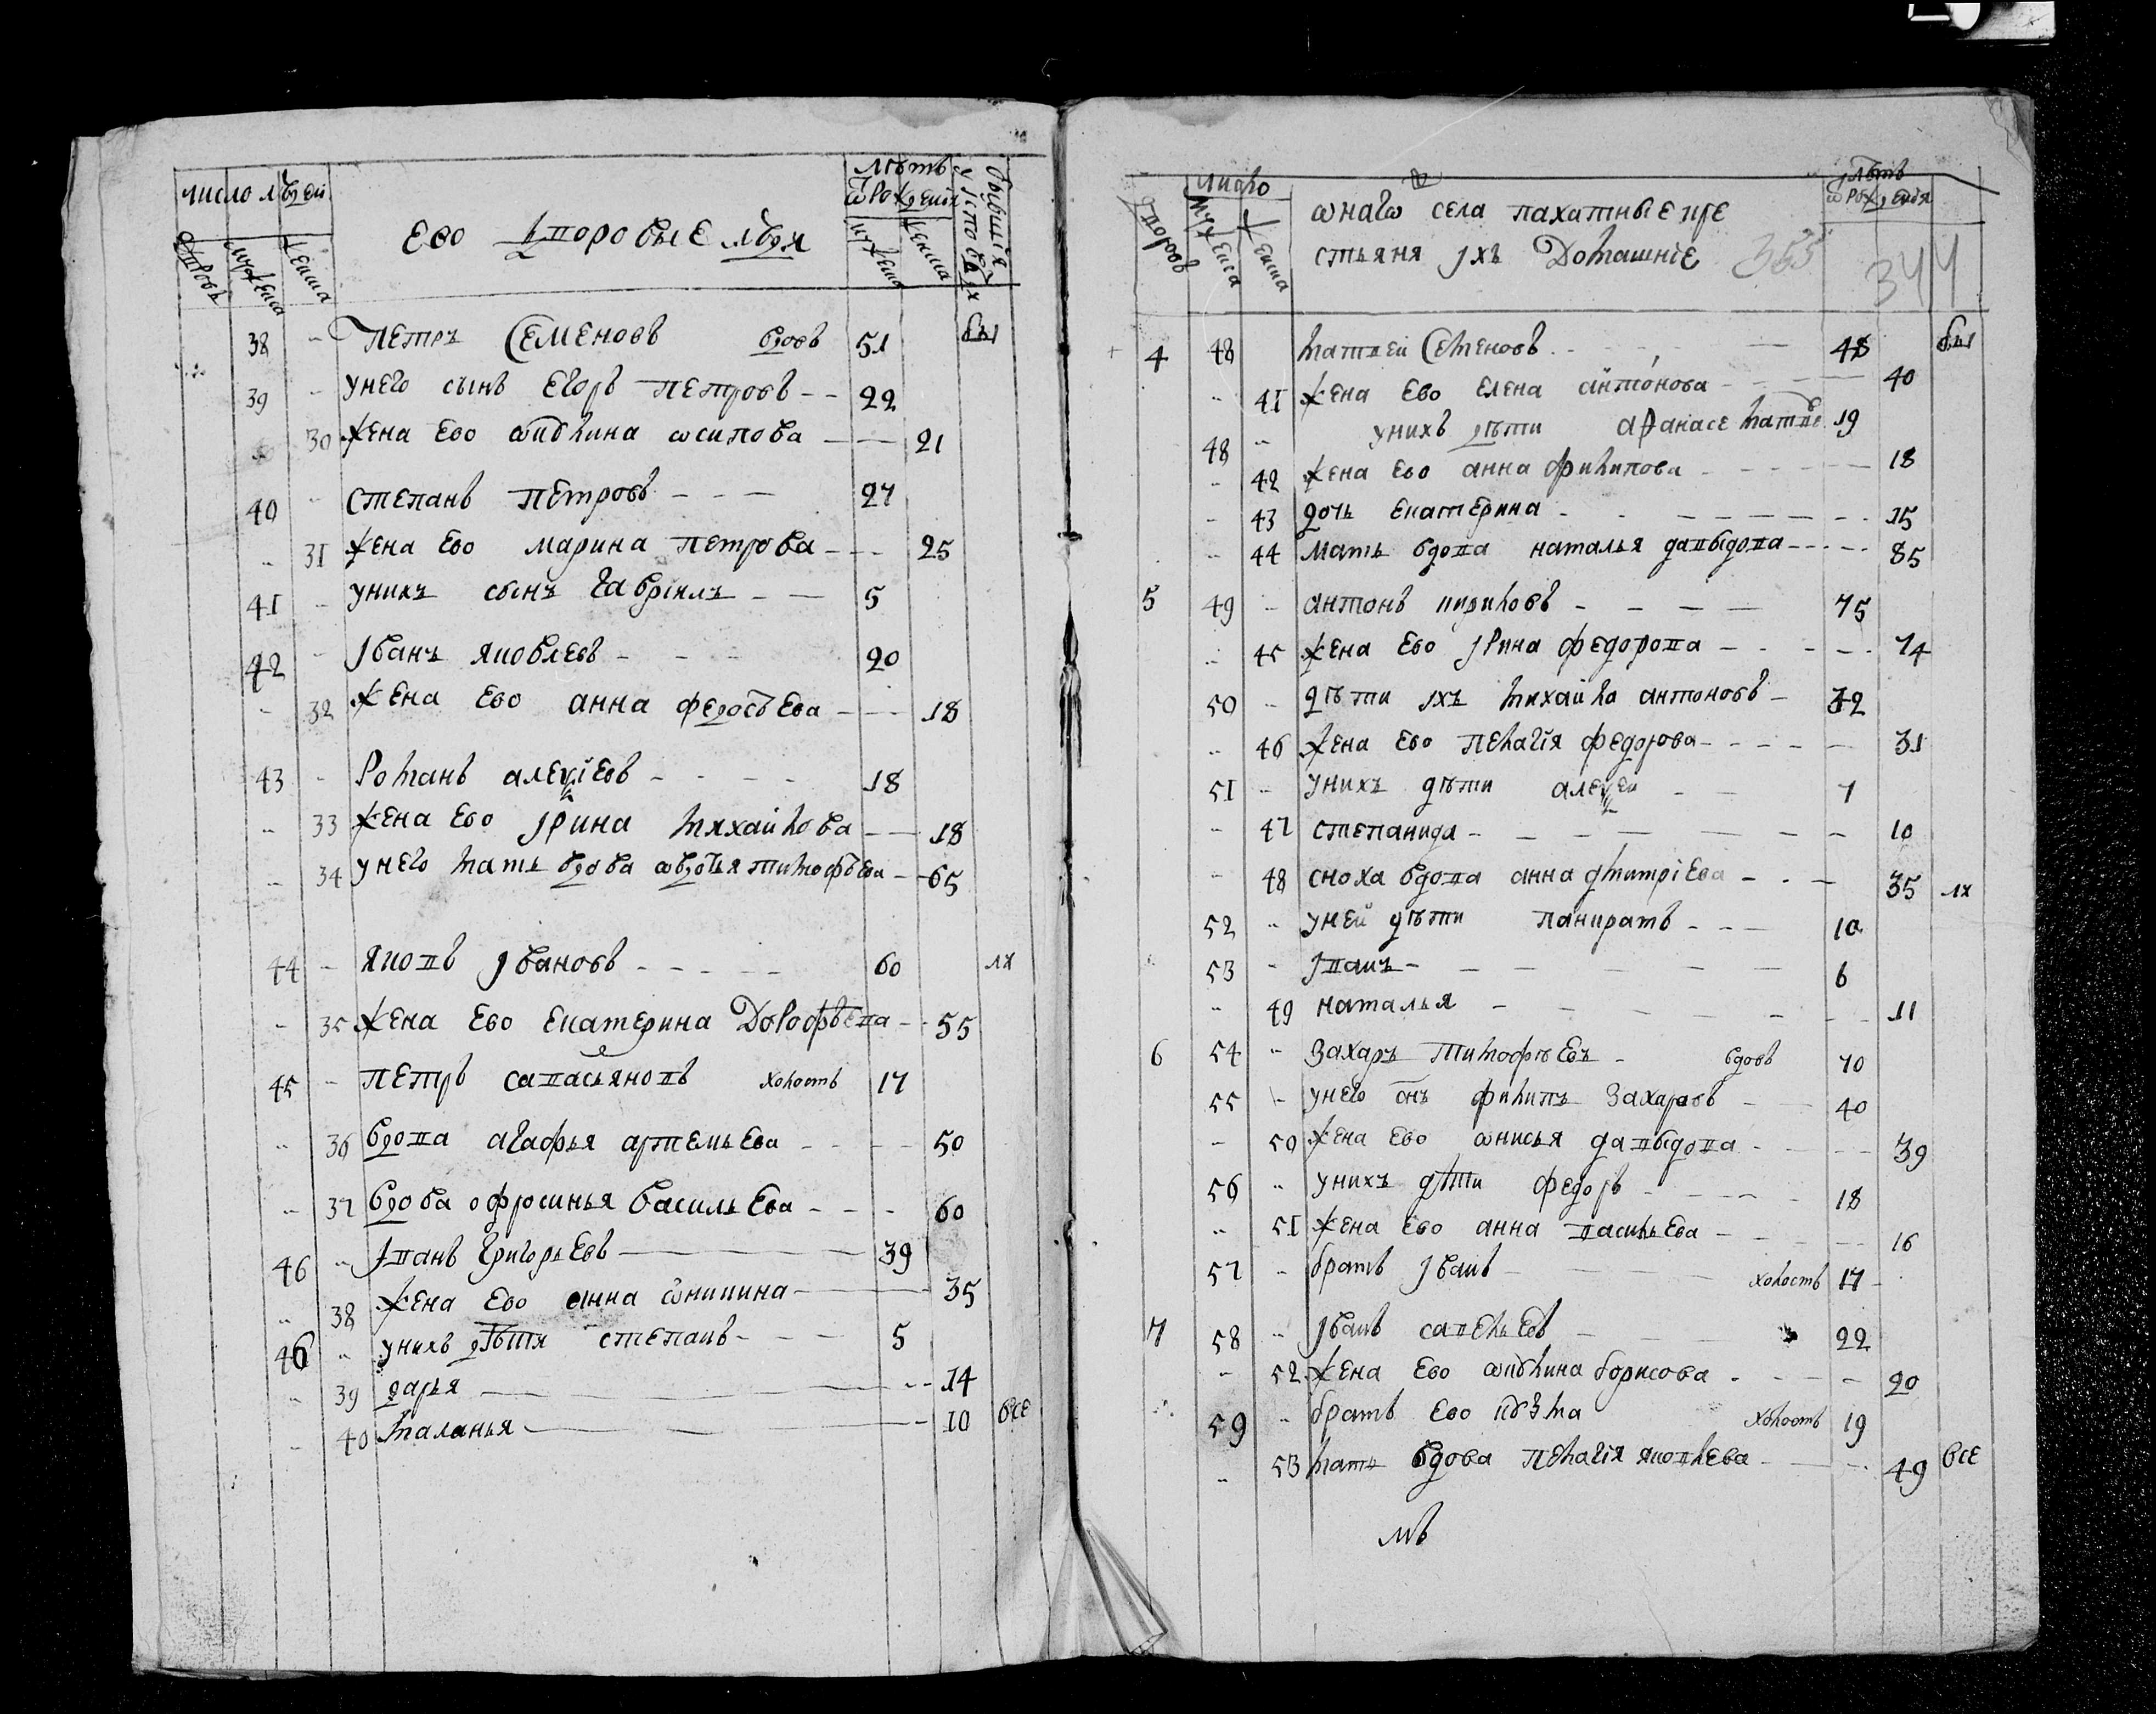 число людей
дворовъ
мужеска
женска
ево дворовые людя
лѣтъ
ѿ рожденія
мужеска
женска
бывшія у исповѣди
38 " петръ семеновъ вдовъ 51 бы
39 " унего сынъ егоръ петровъ 22
" 30 жена ево акулина осипова 21
40 " степанъ петровъ 27
" 31 жена ево марина петрова 25
41 " унихъ сынъ гаврiилъ 5
42 " іванъ яковлевъ 20
" 32 жена ево анна федосѣева 18
43 " романъ алексіевъ 18
" 33 жена ево ірина михайлова 18
" 34 унего мать вдова авдотья тимофѣева 65
44 " яковъ івановъ 60 лх
" 35 жена ево екатерина дорофѣева 55
45 " петръ савасьяновъ холостъ 17
" 36 вдова агафья артемьева 50
" 37 вдова офросинья васильева 60
46 " іванъ григорьевъ 39
" 38 жена ево анна ѡникина 35
46 " унихъ дѣтя степанъ 5
" 39 дарья 14
" 40 маланья 10 все
число
дворовъ
мужеска
женска
ѡнагѡ села пахатные кре
стьяня іхъ домашніе
355
344
лѣтъ
ѿ рожденія
4 48 матвей семеновъ 48 бы
" 41 жена ево елена антонова 40
48 " унихъ дѣти афанасе матве 19
" 42 жена ево анна филипова 18
" 43 дочь екатерина 15
" 44 мать вдова наталья давыдова 85
5 49 " антонъ кириловъ 75
" 45 жена ево ірина федорова 74
50 " дѣти іхъ михайла антоновъ 32
" 46 жена ево пелагія федорова 31
51 " унихъ дѣти алексеи 7
" 47 степанида 10
" 48 сноха вдова анна дмитріева 35 лх
52 " уней дѣти панкратъ 10
53 " іванъ 6
" 49 наталья 11
6 54 " захаръ тимофѣевъ вдовъ 70
55 " унего снъ филипъ захаровъ 40
" 50 жена ево ѡнисья давыдова 39
56 " унихъ дѣти федоръ 18
" 51 жена ево анна васильева 16
57 " братъ іванъ холостъ 17
7 58 " іванъ савельевъ 22
" 52 жена ево акулина борисова 20
59 " братъ ево кузма холостъ 19
" 53 мать вдова пелагія яковлева 49 все